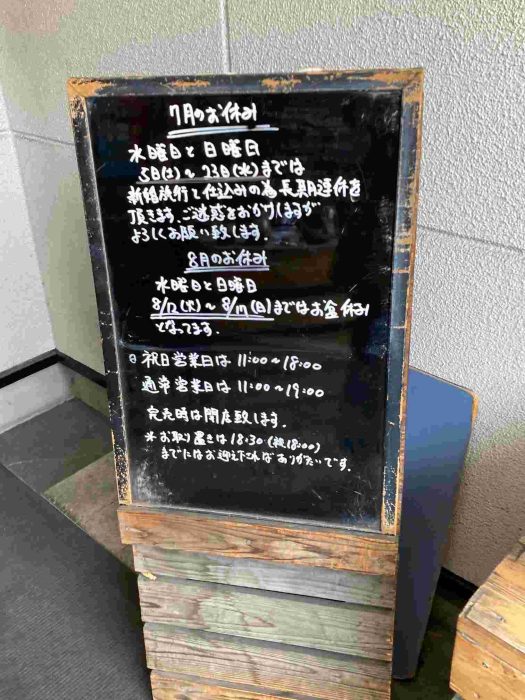 7月のお休み
水曜日と日曜日
5日(土)～23日(水)までは
新婚旅行と仕込みの為長期連休を
頂きます。ご迷惑をおかけしますが
よろしくお願い致します。
8月のお休み
水曜日と日曜日
8/12(火)～8/17(日)まではお盆休み
となってます。
祝日営業日は11:00～18:00
通常営業日は11:00～19:00
完売時は閉店致します。
※お取り置きは18:30(祝18:00)
までにはお迎え下さればありがたいです。